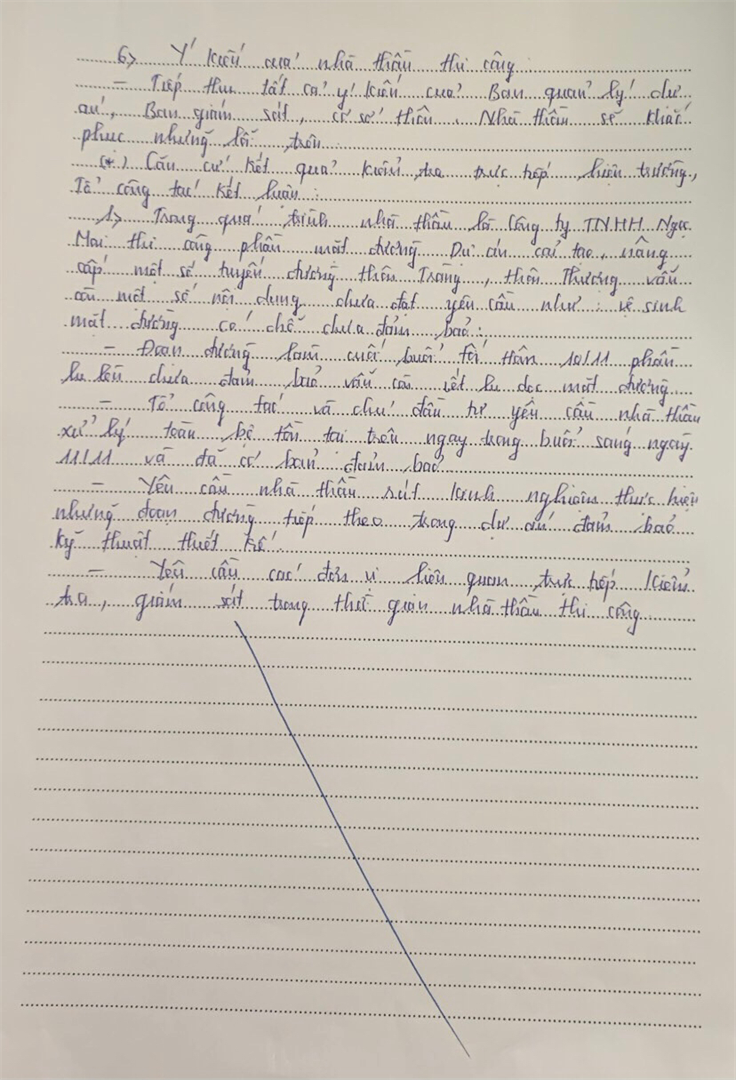 6> Ý kiến của nhà thầu thi công
- Tiếp thu tất cả ý kiến của Ban quản lý dự
án, Ban giám sát, cơ sở thôn. Nhà thầu sẽ khắc
phục những lỗi trên
(*) Căn cứ kết quả kiểm tra trực tiếp hiện trường,
Tổ công tác kết luận:
1> Trong quá trình nhà thầu là Công ty TNHH Ngọc
Mai thi công phần mặt đường Dự án cải tạo, nâng
cấp một số tuyến đường thôn Trọng, thôn Thượng vẫn
còn một số nội dung chưa đạt yêu cầu như: vệ sinh
mặt đường có chỗ chưa đảm bảo;
- Đoạn đường làm cuối buổi tối hôm 10/11 phần
lu lèn chưa đảm bảo vẫn còn vết lu dọc mặt đường
- Tổ công tác và chủ đầu tư yêu cầu nhà thầu
xử lý toàn bộ tồn tại trên ngay trong buổi sáng ngày
11/11 và đã cơ bản đảm bảo
- Yêu cầu nhà thầu rút kinh nghiệm thực hiện
những đoạn đường tiếp theo trong dự án đảm bảo
kỹ thuật thiết kế.
- Yêu cầu các đơn vị liên quan trực tiếp kiểm
tra, giám sát trong thời gian nhà thầu thi công